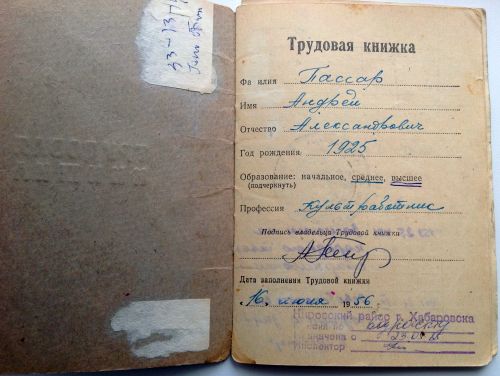 33-13-
Трудовая книжка
Фа илия Пассар
Имя Андрей
Отчество Александрович
Год рождения 1925
Образование: начальное, среднее, высшее
(подчеркнуть)
Профессия Культработник
Подпись владельца Трудовой книжки
Дата заполнения Трудовой книжки
16 июля 1956 г.
Кировский район г. Хабаровска
по старости
значена с 23.01
Инспектор